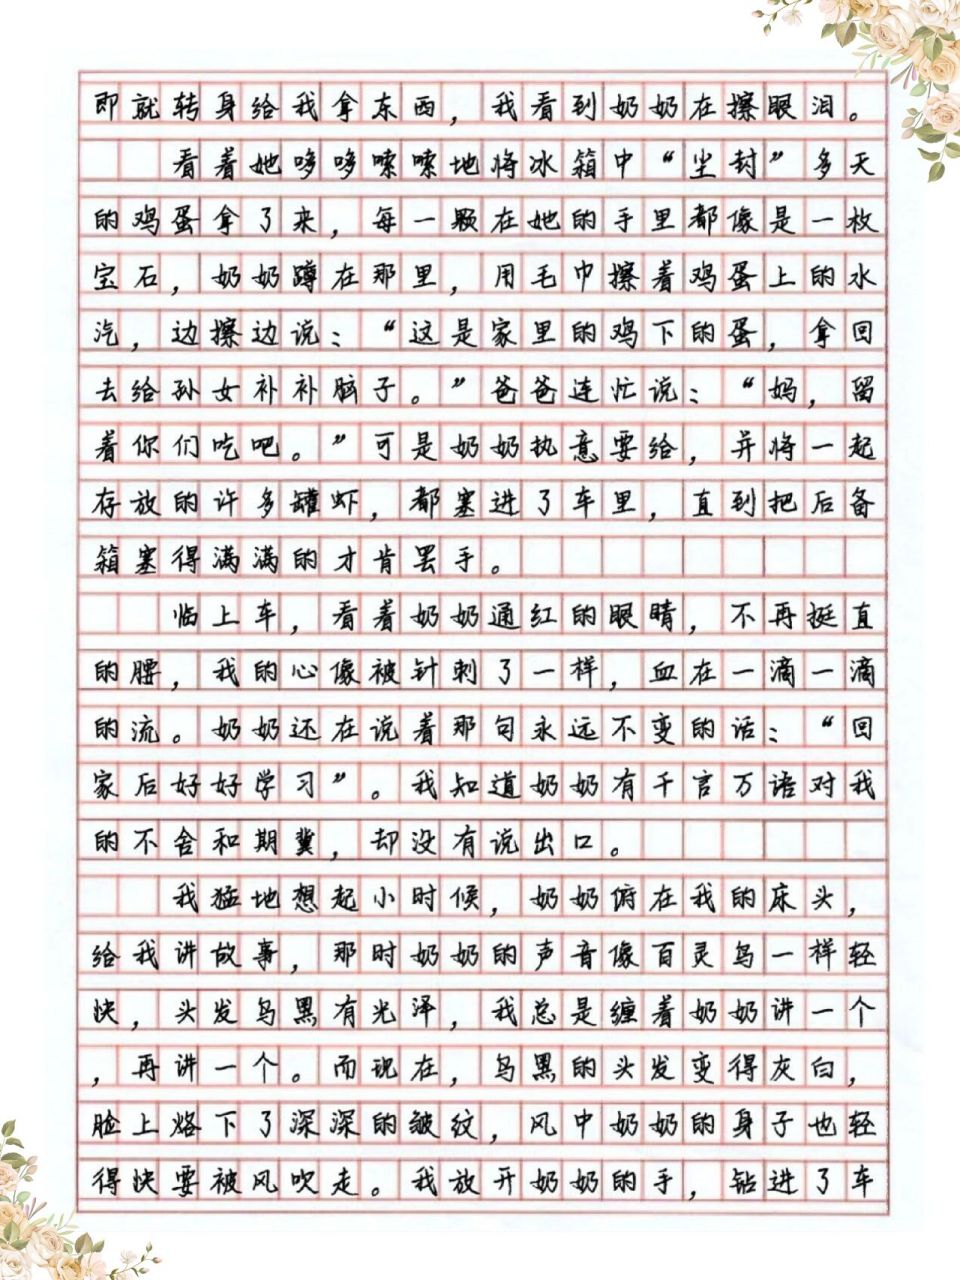 即就转身给我拿东西，我看到奶奶在擦眼泪。
看着她哆哆嗦嗦地将冰箱中“尘封”多天
的鸡蛋拿了来，每一颗在她的手里都像是一枚
宝石，奶奶蹲在那里，用毛巾擦着鸡蛋上的水
汽，边擦边说：“这是家里的鸡下的蛋，拿回
去给孙女补补脑子。”爸爸连忙说：“妈，留
着你们吃吧。”可是奶奶执意要给，并将一起
存放的许多罐虾，都塞进了车里，直到把后备
箱塞得满满的才肯罢手。
临上车，看着奶奶通红的眼睛，不再挺直
的腰，我的心像被针刺了一样，血在一滴一滴
的流。奶奶还在说着那句永远不变的话：“回
家后好好学习”。我知道奶奶有千言万语对我
的不舍和期冀，却没有说出口。
我猛地想起小时候，奶奶俯在我的床头，
给我讲故事，那时奶奶的声音像百灵鸟一样轻
快，头发乌黑有光泽，我总是缠着奶奶讲一个
，再讲一个。而现在，乌黑的头发变得灰白，
脸上烙下了深深的皱纹，风中奶奶的身子也轻
得快要被风吹走。我放开奶奶的手，钻进了车